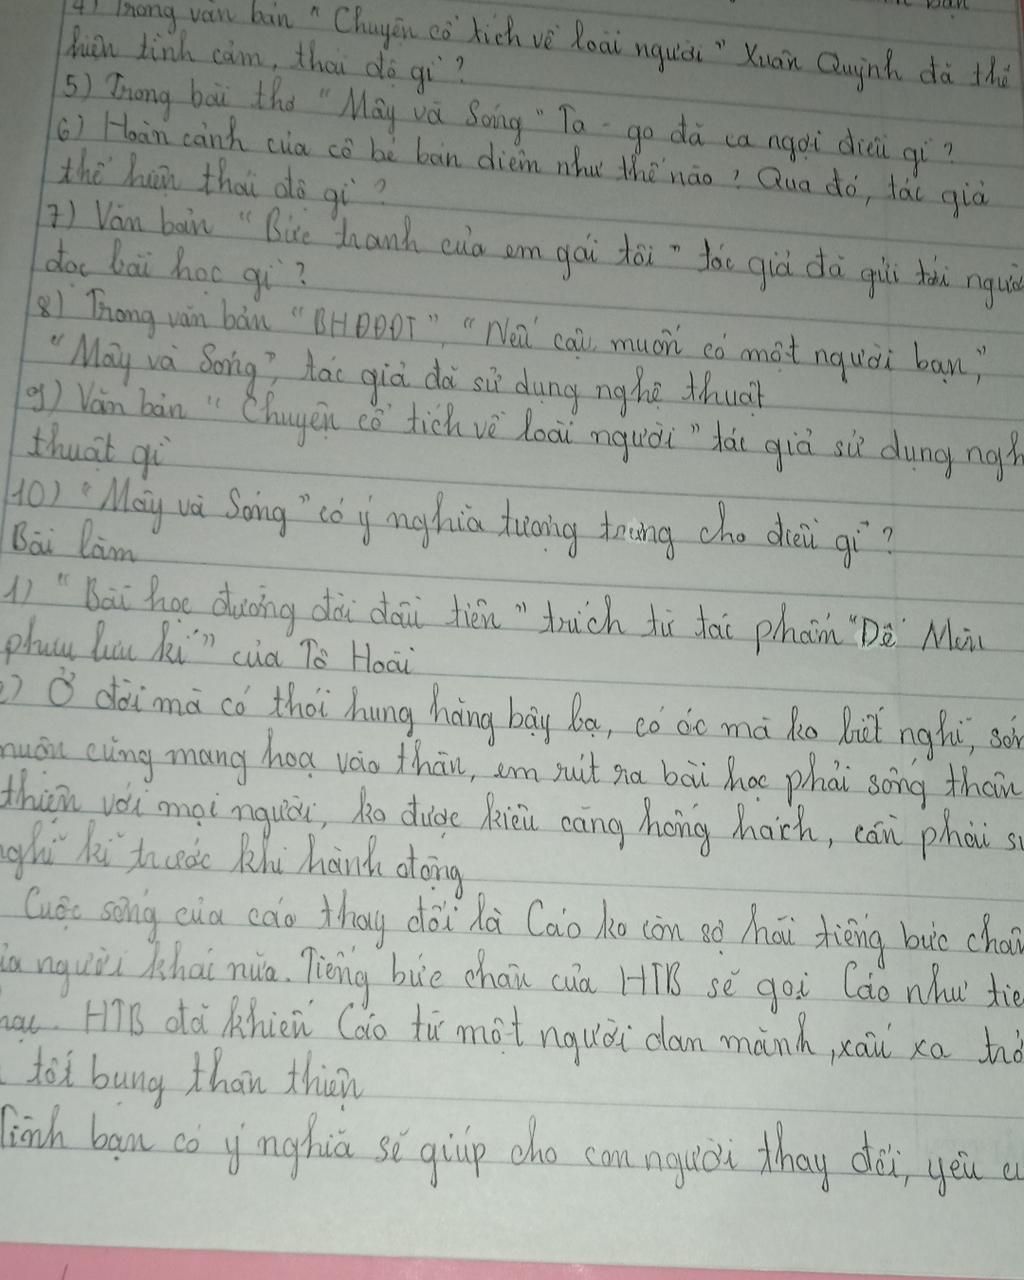 4) Trong văn bản " Chuyện cổ tích về loài người" Xuân Quỳnh đã thể
hiện tình cảm, thái độ gì?
5) Trong bài thơ "Mây và Sóng" Ta-go đã ca ngợi điều gì?
6) Hoàn cảnh của cô bé bán diêm như thế nào? Qua đó, tác giả
thể hiện thái độ gì?
7) Văn bản "Bức tranh của em gái tôi" tác giả đã gửi tới người
đọc bài học gì?
8) Trong văn bản "BHĐĐĐT", "Nếu cậu muốn có một người bạn,"
"Mây và Sóng", tác giả đã sử dụng nghệ thuật
9) Văn bản "Chuyện cổ tích về loài người" tác giả sử dụng ngh
thuật gì
10) "Mây và Sóng" có ý nghĩa tượng trưng cho điều gì?
Bài làm
1) "Bài học đường đời đầu tiên" trích từ tác phẩm "Dế Mèn
phưu lưu kí" của Tô Hoài
2) Ở đời mà có thói hung hăng bậy bạ, có óc mà ko biết nghĩ, sớm
muộn cũng mang hoạ vào thân, em rút ra bài học phải sống thân
thiện với mọi người, ko được kiêu căng hống hách, cần phải su
nghĩ kĩ trước khi hành động
Cuộc sống của cáo thay đổi là Cáo ko còn sợ hãi tiếng bức chân
của người khác nữa. Tiếng bức chân của HTB sẽ gọi Cáo như tiế
nhạc. HTB đã khiến Cáo từ một người dan mảnh, xấu xa trở
tốt bụng thân thiện
Tình bạn có ý nghĩa sẽ giúp cho con người thay đổi, yêu